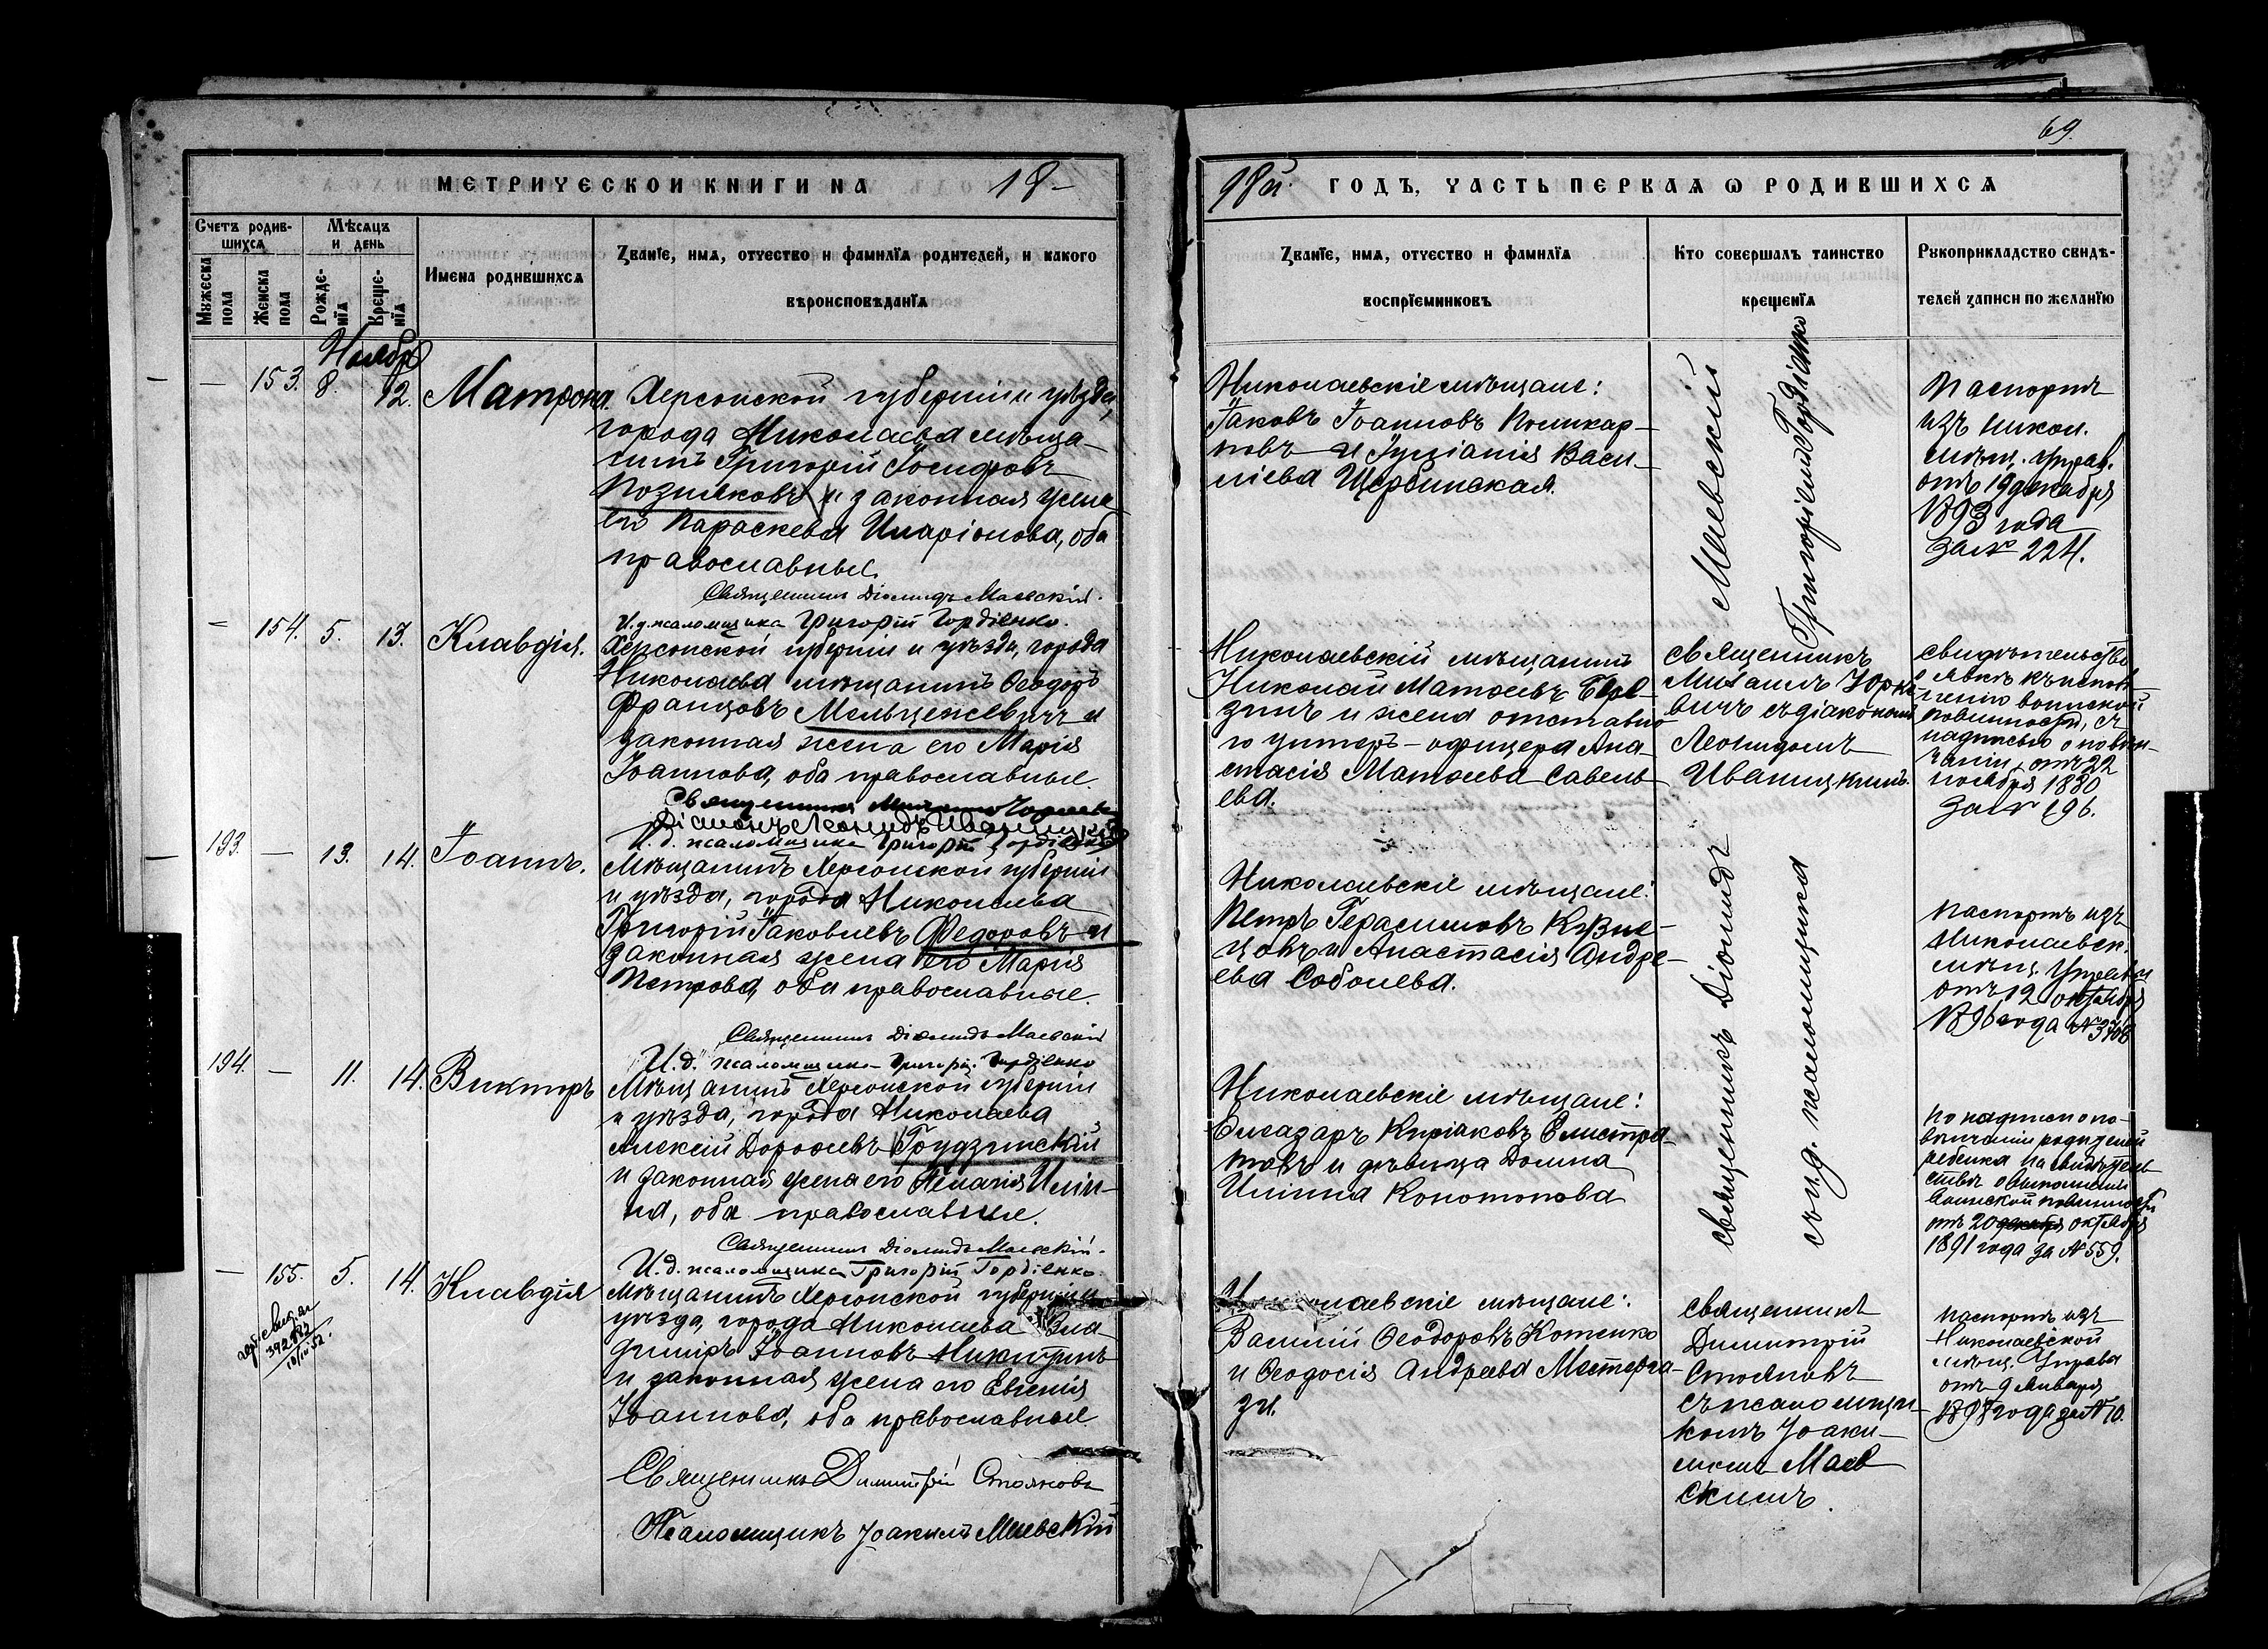 69.
МЕТРИЧЕСКОЙ КНИГИ НА 18-
98й. ГОДЪ, ЧАСТЬ ПЕРВАЯ Ѡ РОДИВШИХСЯ
Счетъ родив-
шихся
Мѣсяцъ
и день
Мужеска
пола
Женска
пола
Рожде-
нїя
Креще-
нїя
Имена родившихся
Званїе, имя, отчество и фамилїя родителей, и какого
вѣроисповѣданїя
Званїе, имя, отчество и фамилїя
воспрїемниковъ
Кто совершалъ таинство
крещенїя
Рукоприкладство свидѣ-
телей записи по желанїю
Ноябр
— 153. 8. 12. Матрона.
Херсонской губерніи и уѣзда,
города Николаева мѣща-
нинъ Григорій Іосифовъ
Позняковъ и законная жена
его Параскева Иларіонова, оба
православные.
Священникъ Діомидъ Маевскій.
И.д. псаломщика Григорій Гордіенко.
Николаевскіе мѣщане:
Іаковъ Іоанновъ Поликар-
повъ и Іуліанія Васи-
ліева Щербинская.
Паспортъ
изъ никол.
мѣщ. управ.
отъ 19 декабря
1893 года
за № 224.
— 154. 5. 13. Клавдія.
Херсонской губерніи и уѣзда, города
Николаева мѣщанинъ Ѳеодоръ
Францовъ Мельцежевичъ и
законная жена его Марія
Іоаннова, оба православные.
Священникъ
Діаконъ Леонидъ Иваницкій
И.д. псаломщика Григорій Гордіенко
Николаевскій мѣщанинъ
Николай Матѳеевъ
и жена отставно
го унтеръ-офицера Ана-
стасія Матѳеева Савель-
ева.
Священникъ
Михаилъ
съ діакономъ
Леонидомъ
Иваницкимъ.
Свидѣтельство
о явкѣ къ испол-
ненію воинской
повинности, съ
надписью о повѣн-
чаніи, отъ 22
ноября 1880
за № 196.
193. — 13. 14. Іоаннъ.
Мѣщанинъ Херсонской губерніи
и уѣзда, города Николаева
Григорій Іаковлевъ Федоровъ и
законная жена его Марія
Петрова, оба православные.
Священникъ Діомидъ Маевскій
И.д. псаломщика Григорій Гордіенко
Николаевскіе мѣщане:
Петръ Герасимовъ Кузне-
цовъ и Анастасія Андре-
ева Соболева.
Паспортъ изъ
Николаевск.
мѣщ. Управы
отъ 12 октября
1896 года №
194. — 11. 14. Викторъ
Мѣщанинъ Херсонской губерніи
и уѣзда, города Николаева
Алексій Дороѳеевъ Грудзинскій
и законная жена его Пелагія Ильи-
на, оба православные.
Священникъ Діомидъ Маевскій.
И.д. псаломщика Григорій Гордіенко.
Николаевскіе мѣщане:
Елеазаръ Киріаковъ Елистра-
товъ и дѣвица Домна
Ильина Конотопова
Священникъ Діомидъ Маевскій
съ и.д. псаломщика Григоріемъ Гордіенко
По надписи о по-
вѣнчаніи родителей
ребенка на свидѣтель-
ствѣ о выполненіи
воинской повинности
отъ 20 декабря октября
1891 года за № 559.
— 155. 5. 14. Клавдія
Мѣщанинъ Херсонской губерніи и
уѣзда, города Николаева Вла-
димиръ Іоанновъ Никитинъ
и законная жена его Евгенія
Іоаннова, оба православные
Священникъ Димитрій Стояновъ
Псаломщикъ Іоакимъ Маевскій
Николаевскіе мѣщане:
Василій Ѳеодоровъ Котенко
и Ѳеодосія Андреева
Священникъ
Димитрій
Стояновъ
съ псаломщи-
комъ Іоаки-
момъ Маев
скимъ.
Паспортъ изъ
Николаевской
мѣщ. Управы
отъ 9 Января
1897 года за № 10.